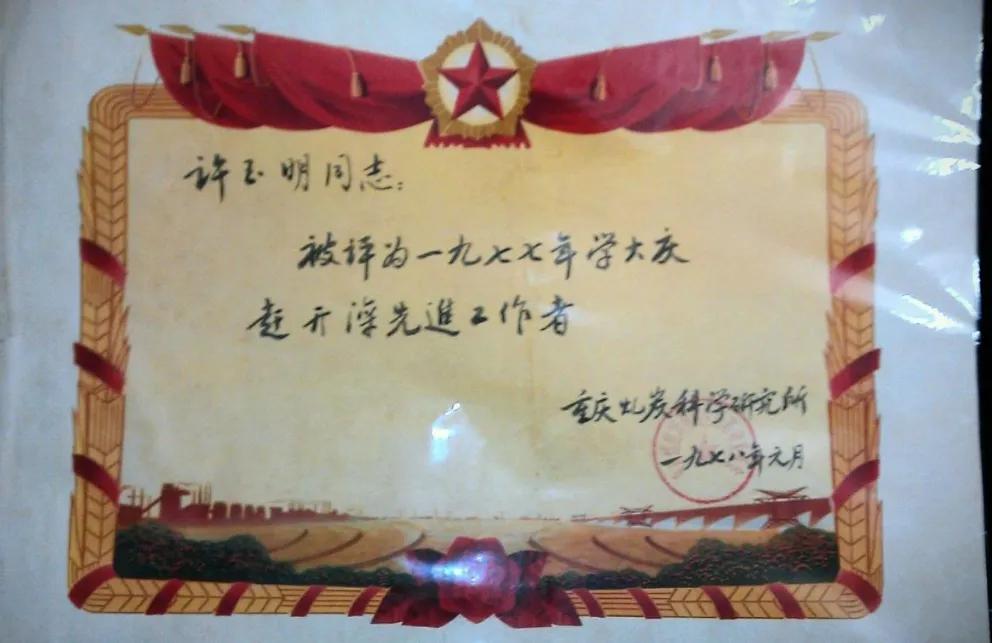 许玉明同志：
被评为一九七七年学大庆
赶开滦先進工作者
重庆煤炭科学研究所
一九七八年元月